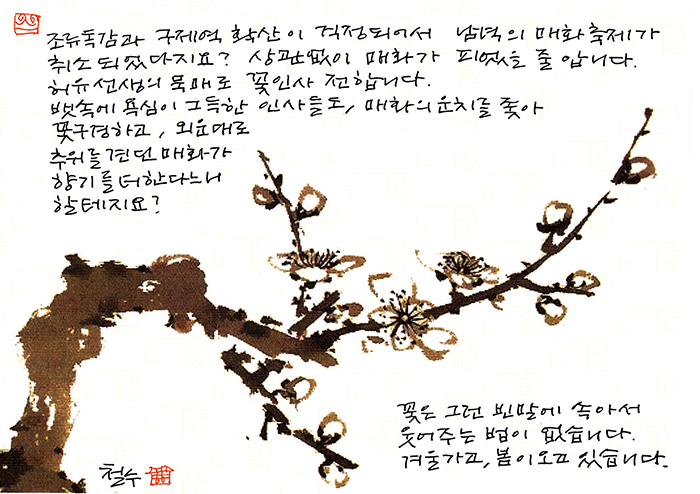 조류독감과 구제역 확산이 걱정되어서 남녘의 매화축제가
취소되었다지요? 상관없이 매화가 피었을 줄 압니다.
허유선생의 묵매로 꽃인사 전합니다.
뱃속에 욕심이 그득한 인사들도, 매화의 운치를 좇아
꽃구경하고, 외운대로
추위를 견딘 매화가
향기를 더한다느니
할테지요?
꽃은 그런 빈말에 속아서
웃어주는 법이 없습니다.
겨울가고, 봄이오고 있습니다.
철수